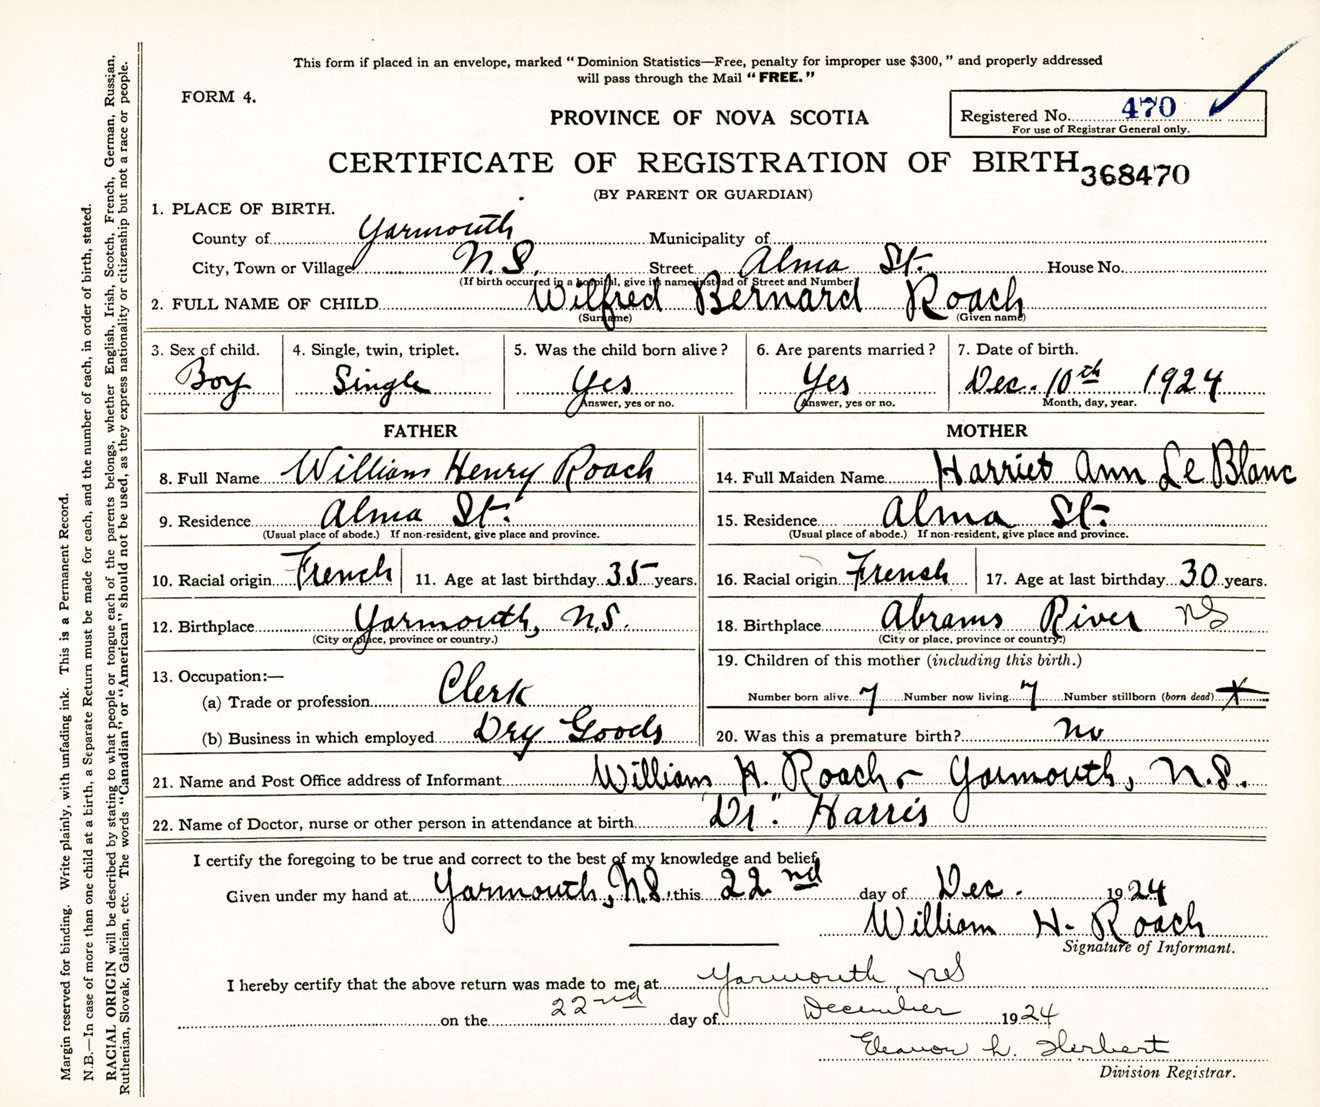 This form if placed in an envelope, marked "Dominion Statistics—Free, penalty for improper use $300," and properly addressed
will pass through the Mail "FREE."
FORM 4.
PROVINCE OF NOVA SCOTIA
Registered No. 470
For use of Registrar General only.
CERTIFICATE OF REGISTRATION OF BIRTH
368470
(BY PARENT OR GUARDIAN)
1. PLACE OF BIRTH.
County of Yarmouth Municipality of
City, Town or Village N.S. Street Alma St. House No.
(If birth occurred in a hospital, give its name instead of Street and Number)
2. FULL NAME OF CHILD Wilfred Bernard Roach
(Surname) (Given name)
3. Sex of child. 4. Single, twin, triplet. 5. Was the child born alive? 6. Are parents married? 7. Date of birth.
Boy Single Yes Yes Dec. 10th 1924
Answer, yes or no. Answer, yes or no. Month, day, year.
FATHER MOTHER
8. Full Name William Henry Roach 14. Full Maiden Name Harriet Ann Le Blanc
9. Residence Alma St. 15. Residence Alma St.
(Usual place of abode.) If non-resident, give place and province. (Usual place of abode.) If non-resident, give place and province.
10. Racial origin French 11. Age at last birthday 35 years. 16. Racial origin French 17. Age at last birthday 30 years.
12. Birthplace Yarmouth, N.S. 18. Birthplace Abrams River NS
(City or place, province or country.) (City or place, province or country.)
13. Occupation:— 19. Children of this mother (including this birth.)
(a) Trade or profession Clerk Number born alive 7 Number now living 7 Number stillborn (born dead) X
(b) Business in which employed Dry Goods 20. Was this a premature birth? No
21. Name and Post Office address of Informant William H. Roach - Yarmouth, N.S.
22. Name of Doctor, nurse or other person in attendance at birth Dr. Harris
I certify the foregoing to be true and correct to the best of my knowledge and belief,
Given under my hand at Yarmouth, N.S. this 22nd day of Dec. 1924
William H. Roach
Signature of Informant.
I hereby certify that the above return was made to me, at Yarmouth, NS
on the 22nd day of December 1924
Eleanor L. Herbert
Division Registrar.
Margin reserved for binding. Write plainly, with unfading ink. This is a Permanent Record.
N.B.—In case of more than one child at a birth, a Separate Return must be made for each, and the number of each, in order of birth, stated.
RACIAL ORIGIN will be described by stating to what people or tongue each of the parents belongs, whether English, Irish, Scotch, French, German, Russian,
Ruthenian, Slovak, Galician, etc. The words "Canadian" or "American" should not be used, as they express nationality or citizenship but not a race or people.